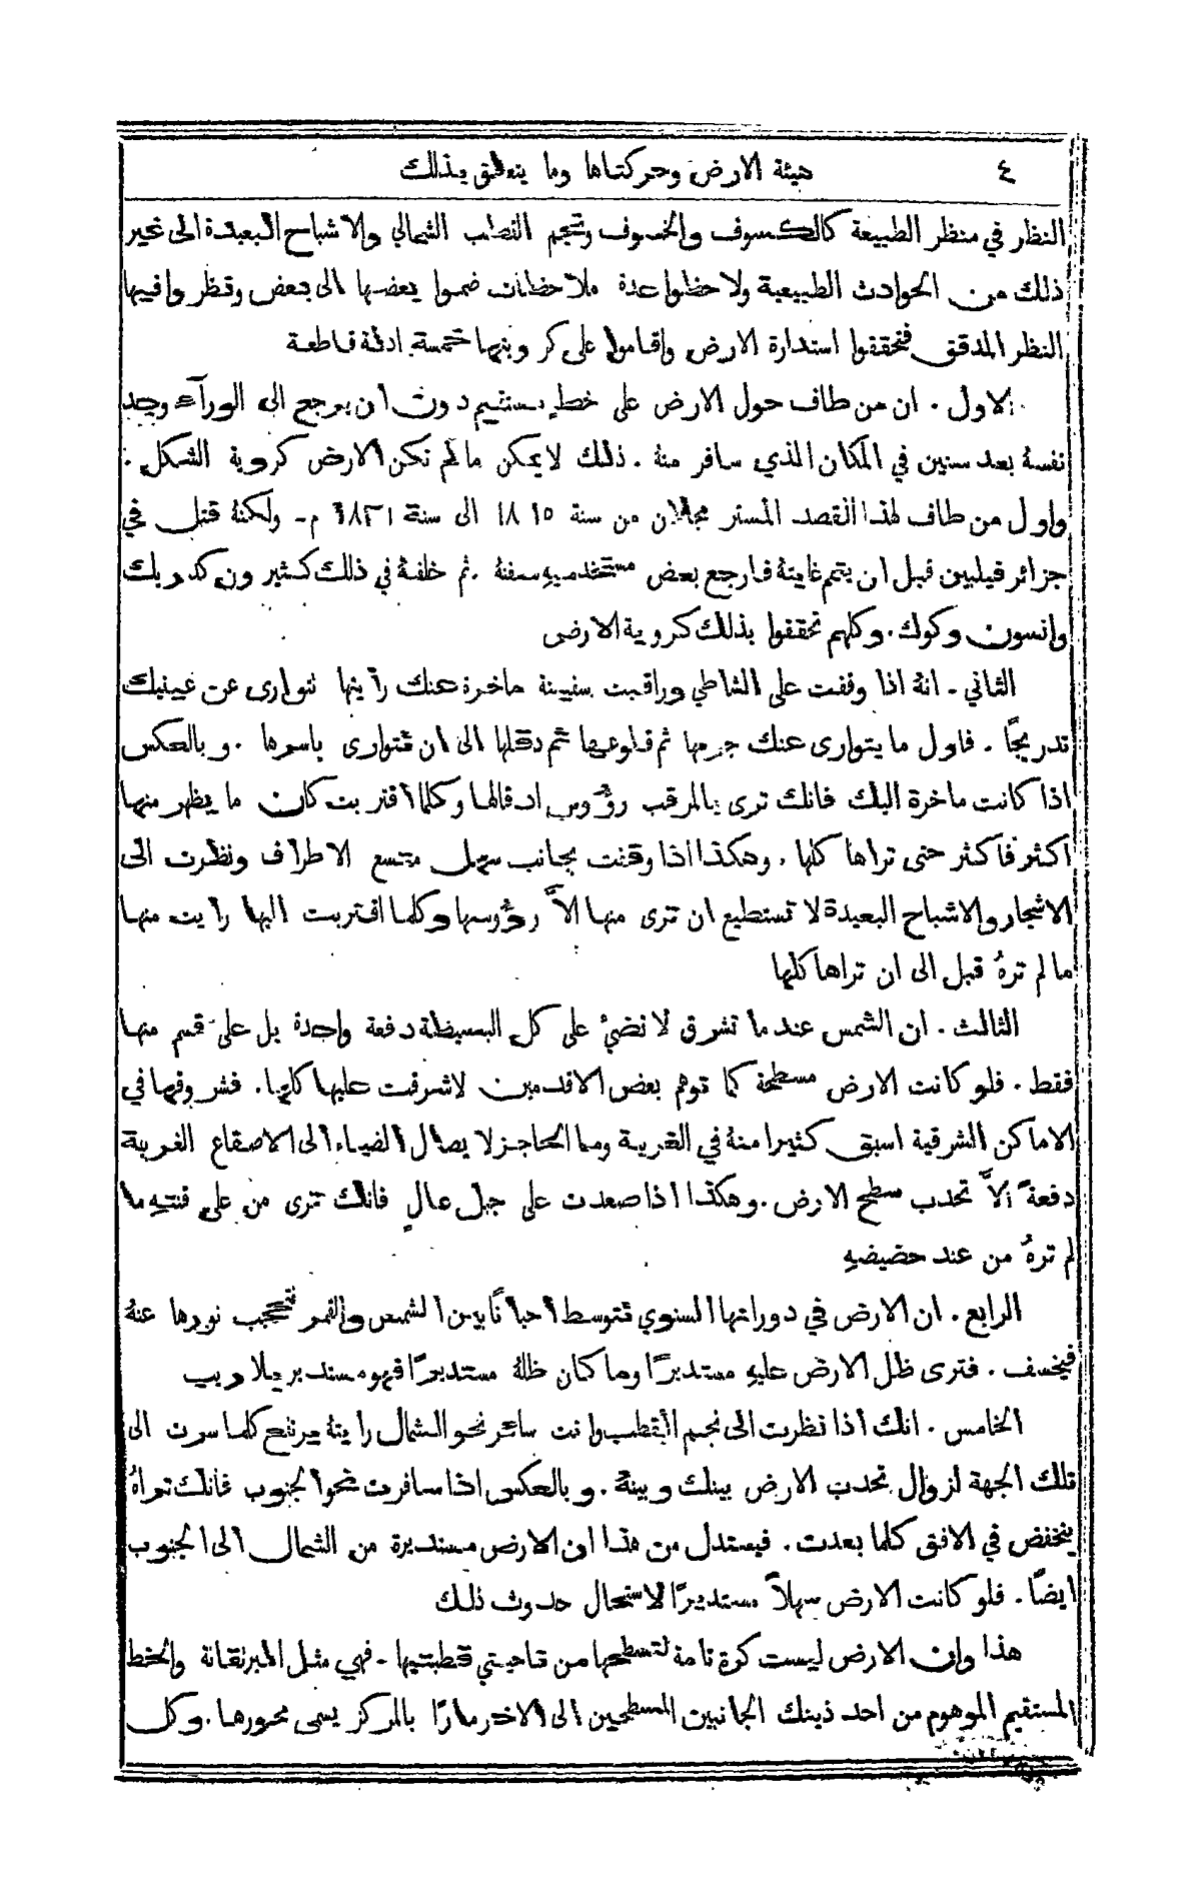 ٤ هيئة الارض وحركتاها وما يتعلق بذلك
النظر في منظر الطبيعة كالكسوف والخسوف ونجم القطب الشمالي والاشباح البعيدة الى غير
ذلك من الحوادث الطبيعية ولاحظوا عدة ملاحظات ضموا بعضها الى بعض ونظروا فيها
النظر المدقق فتحققوا استدارة الارض واقاموا على كرويتها خمسة ادلة قاطعة
الاول . ان من طاف حول الارض على خط مستقيم دون ان يرجع الى الورآء وجد
نفسهُ بعد سنين في المكان الذي سافر منهُ . ذلك لا يمكن ما لم تكن الارض كروية الشكل .
واول من طاف لهذا القصد المستر مجلان من سنة ١٨١٥ الى سنة ١٨٢١ م - ولكنهُ قتل في
جزائر فيليبين قبل ان يتم غايتهُ فارجع بعض مستخدميهِ سفنهُ . ثم خلفهُ في ذلك كثيرون كدريك
وانسون وكوك . وكلهم تحققوا بذلك كروية الارض
الثاني - انهُ اذا وقفت على الشاطي وراقبت سفينة ماخرة عنك رأيتها تتوارى عن عينيك
تدريجًا . فاول ما يتوارى عنك جرمها ثم قلوعها ثم دقلها الى ان تتوارى باسرها . وبالعكس
اذا كانت ماخرة اليك فانك ترى بالمرقب رؤوس ادقالها وكلما اقتربت كان ما يظهر منها
اكثر فاكثر حتى تراها كلها . وهكذا اذا وقفت بجانب سهل متسع الاطراف ونظرت الى
الاشجار والاشباح البعيدة لا تستطيع ان ترى منها الاَّ رؤوسها وكلما اقتربت اليها رايت منها
ما لم ترهُ قبل الى ان تراها كلها
الثالث . ان الشمس عند ما تشرق لا تضيُ على كل البسيطة دفعة واحدة بل على قسم منها
فقط . فلو كانت الارض مسطحة كما توهم بعض الاقدمين لاشرقت عليها كلها . فشروقها في
الاماكن الشرقية اسبق كثيرا منهُ في الغربية وما الحاجز لا يصال الضياء الى الاصقاع الغربية
دفعةً الاَّ تحدب سطح الارض . وهكذا اذا صعدت على جبل عالٍ فانك ترى من على قنتهِ ما
لم ترهُ من عند حضيضهِ
الرابع . ان الارض في دورانها السنوي تتوسط احيانًا بين الشمس والقمر فتحجب نورها عنهُ
فيخسف . فترى ظل الارض عليهِ مستديرًا وما كان ظلهُ مستديرًا فهو مستدير بلا ريب
الخامس . انك اذا نظرت الى نجم القطب وانت سائر نحو الشمال رايتهُ يرتفع كلما سرت الى
تلك الجهة لزوال تحدب الارض بينك وبينهُ . وبالعكس اذا سافرت نحو الجنوب فانك تراهُ
ينخفض في الافق كلما بعدت . فيستدل من هذا ان الارض مستديرة من الشمال الى الجنوب
ايضًا . فلو كانت الارض سهلاً مستديرًا لاستحال حدوث ذلك
هذا وان الارض ليست كرة تامة لتسطحها من ناحيتي قطبيها - فهي مثل البرتقانة والخط
المستقيم الموهوم من احد ذينك الجانبين المسطحين الى الاخر مارًا بالمركز يسمى محورها . وكل